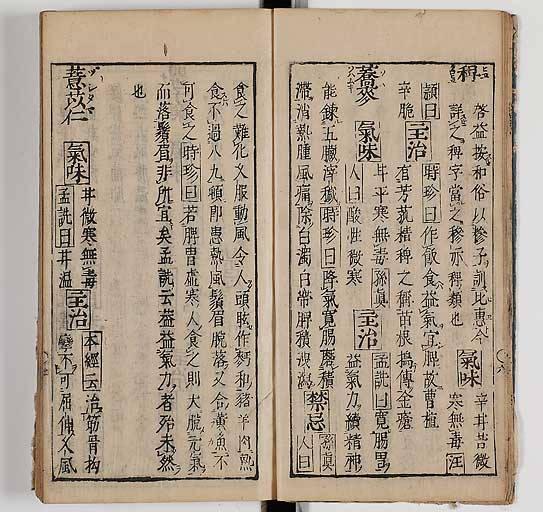 稗
啓益按和俗以糝子訓比惠今
詳之稗字當之穇亦稗類也
氣味
辛甘苦微
寒無毒
汪
頴曰
主治
時珍曰作飯食益氣宜脾故曹植
有芳菰精稗之稱苗根搗傅金瘡
辛脆
蕎麥
氣味
甘平寒無毒
孫眞
人曰
酸性微寒
主治
孟詵曰
寛腸胃
益氣力續精神
能鍊五臟滓穢時珍曰降氣寛腸磨積
滯消熱腫風痛除白濁白帶脾積泄瀉
禁忌
孫眞
人曰
食之難化又服動風令人頭眩作麪和豬羊肉熱
食不過八九頓即患熱風鬚眉脫落又合黃魚不
可食之時珍曰若脾胃虛寒人食之則大脫元氣
而落鬚眉非所宜矣孟詵云益氣力者殆未然
也
薏苡仁
氣味
甘微寒無毒
孟詵曰
甘温
主治
本經云
治筋骨拘
攣不可屈伸久風